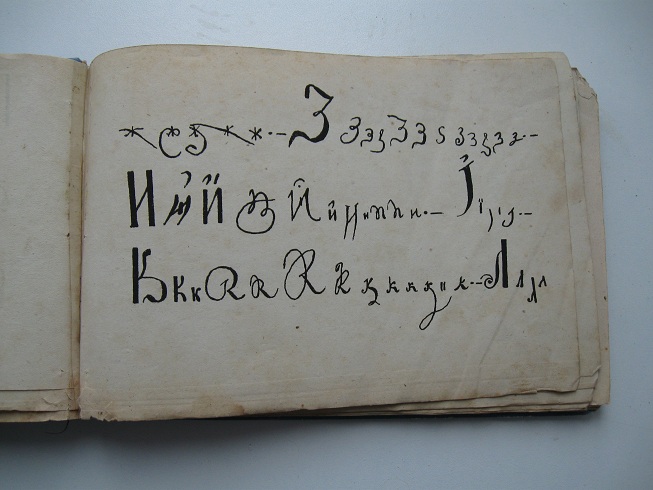 ж ж ж ж ж.– З З з з З З з з з з з з.–
И И Й И И и и и и и и.– І ї і і і.–
К к к К К К К к к к к к к.– Л л л л